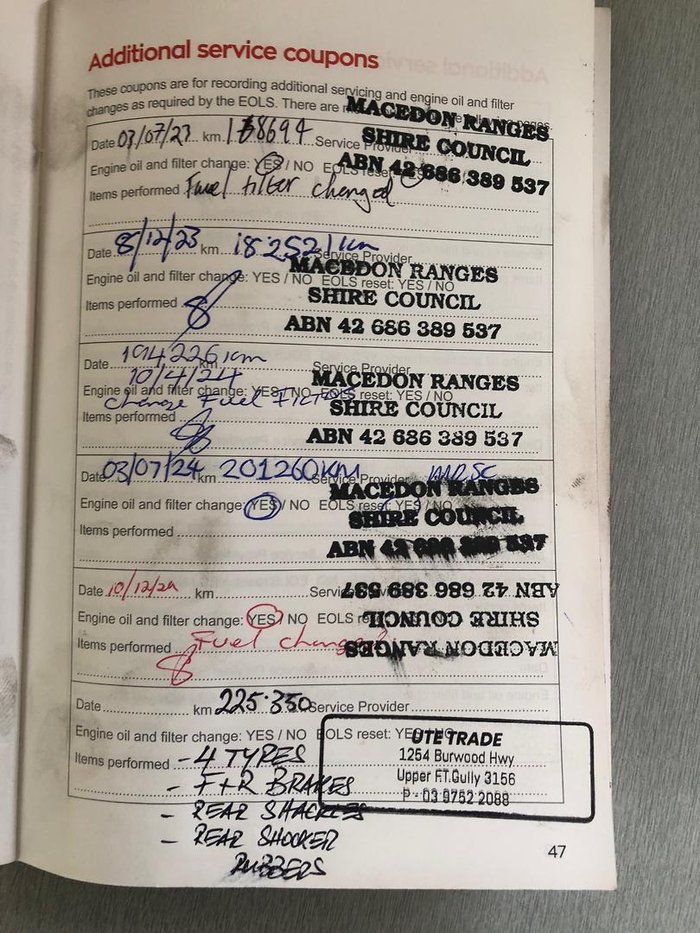 Additional service coupons
These coupons are for recording additional servicing and engine oil and filter
changes as required by the EOLS. There are
MACEDON RANGES
SHIRE COUNCIL
ABN 42 686 389 537
Date 03/07/23 km 188694 Service Provider
Engine oil and filter change: YES / NO EOLS reset:
Items performed Fuel filter changed
Date 8/12/23 km 182521 km Service Provider
MACEDON RANGES
Engine oil and filter change: YES / NO EOLS reset: YES / NO
SHIRE COUNCIL
Items performed
ABN 42 686 389 537
194226 km
Date 10/4/24 km Service Provider
MACEDON RANGES
Engine oil and filter change: YES / NO EOLS reset: YES / NO
Change Fuel
SHIRE COUNCIL
Items performed
ABN 42 686 389 537
Date 03/07/24 km 201260KM Service Provider
MACEDON RANGES
Engine oil and filter change: YES / NO EOLS reset: YES / NO
SHIRE COUNCIL
Items performed
ABN 42 686 389 537
Date 10/12/24 km
ABN 42 686 389 537
Engine oil and filter change: YES / NO EOLS
SHIRE COUNCIL
Items performed Fuel changed
MACEDON RANGES
Date km 225.350 Service Provider
Engine oil and filter change: YES / NO EOLS reset: YES / NO
UTE TRADE
1254 Burwood Hwy
Upper FT.Gully 3156
P - 03 9752 2088
Items performed - 4 TYRES
- F+R BRAKES
- REAR SHACKLES
- REAR SHOCKER
RUBBERS
47